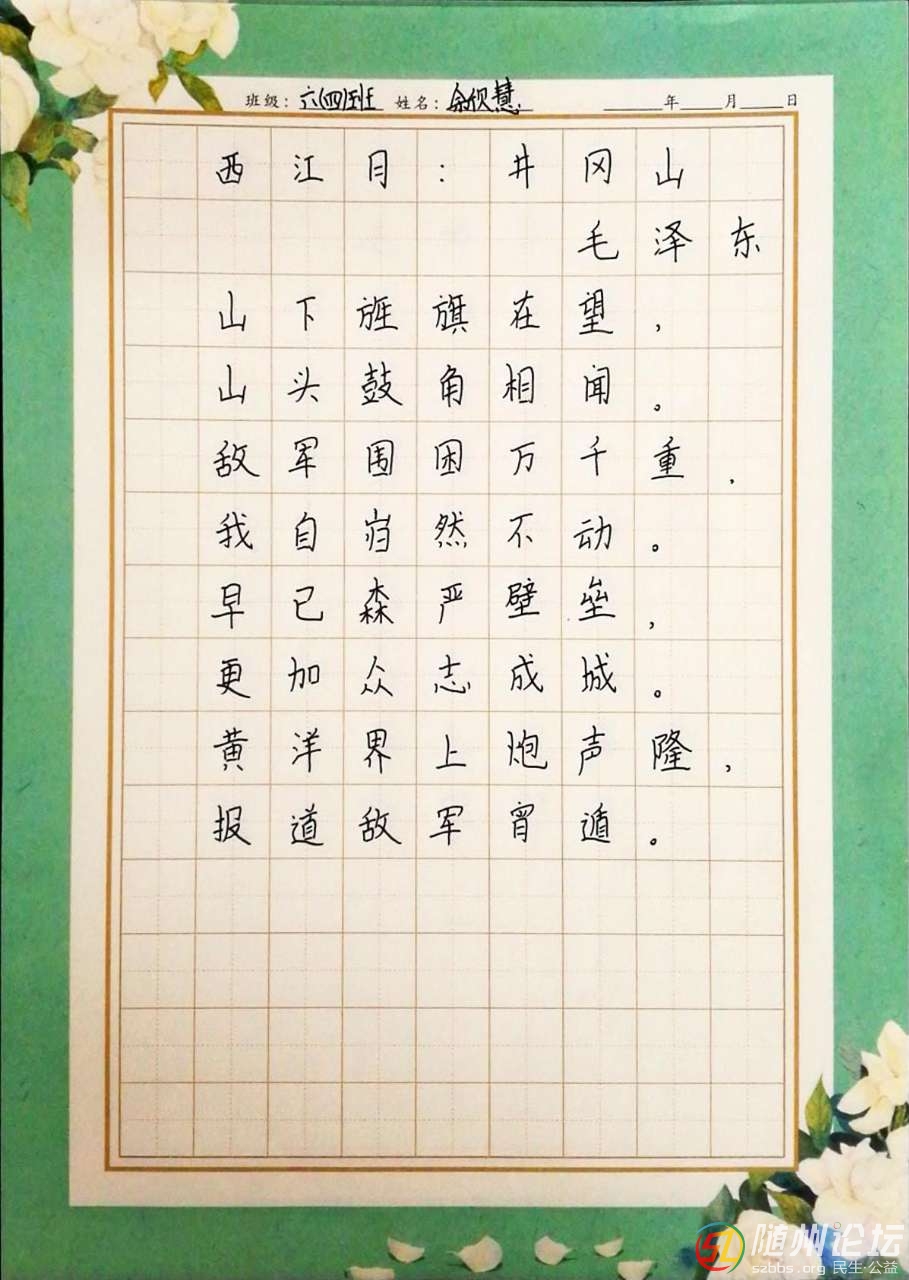 班级：六(四)班 姓名：余欣慧 年 月 日
西江月：井冈山
毛泽东
山下旌旗在望，
山头鼓角相闻。
敌军围困万千重，
我自岿然不动。
早已森严壁垒，
更加众志成城。
黄洋界上炮声隆，
报道敌军宵遁。
随州论坛
szbbs.org 民生·公益